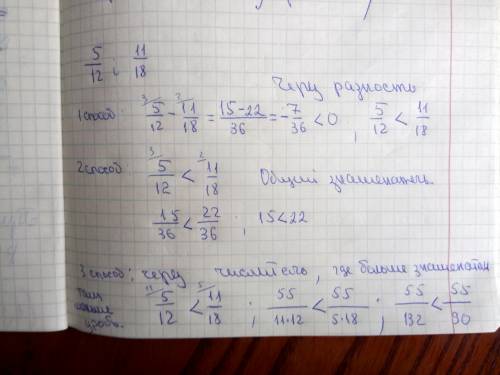 5/12 ; 11/18
Через разность
1 способ: ³⁄5/12 - ²⁄11/18 = 15-22/36 = -7/36 < 0 , 5/12 < 11/18
2 способ: ³⁄5/12 < ²⁄11/18 Общий знаменатель.
15/36 < 22/36 ; 15 < 22
3 способ: через числитель, где больше знаменатель
там
дробь. ¹¹⁄5/12 < ⁵⁄11/18 ; 55/11·12 < 55/5·18 ; 55/132 < 55/90